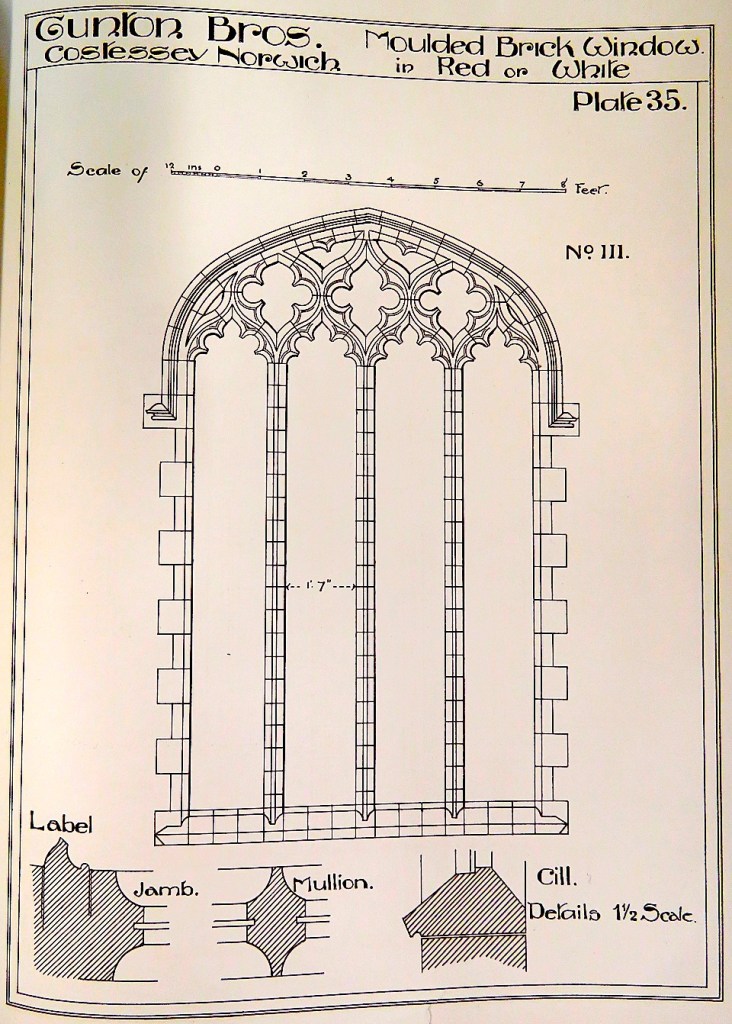 Gunton Bros.
Costessey Norwich.
Moulded Brick Window.
in Red or White
Plate 35.
Scale of 12 ins 0 1 2 3 4 5 6 7 8 Feet.
No III.
1' 7"
Label
Jamb.
Mullion.
Cill.
Details 1½ Scale.